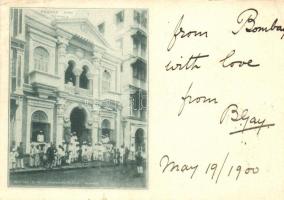 from Bombay
with love
from
B. Gay
May 19/1900